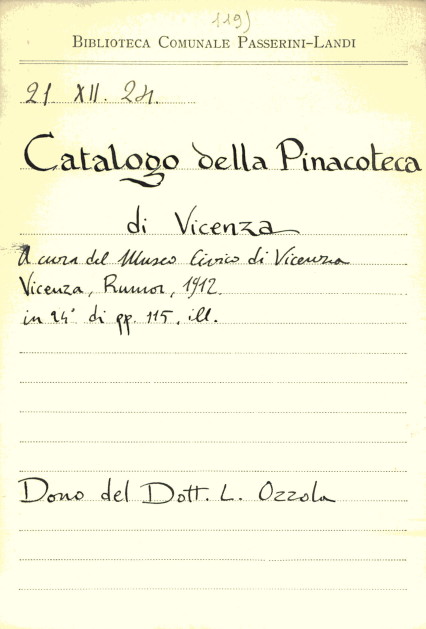 119)
BIBLIOTECA COMUNALE PASSERINI-LANDI
21 XII. 24.
Catalogo della Pinacoteca
di Vicenza
A cura del Museo Civico di Vicenza
Vicenza, Rumor, 1912.
in 24° di pp. 115. ill.
Dono del Dott. L. Ozzola